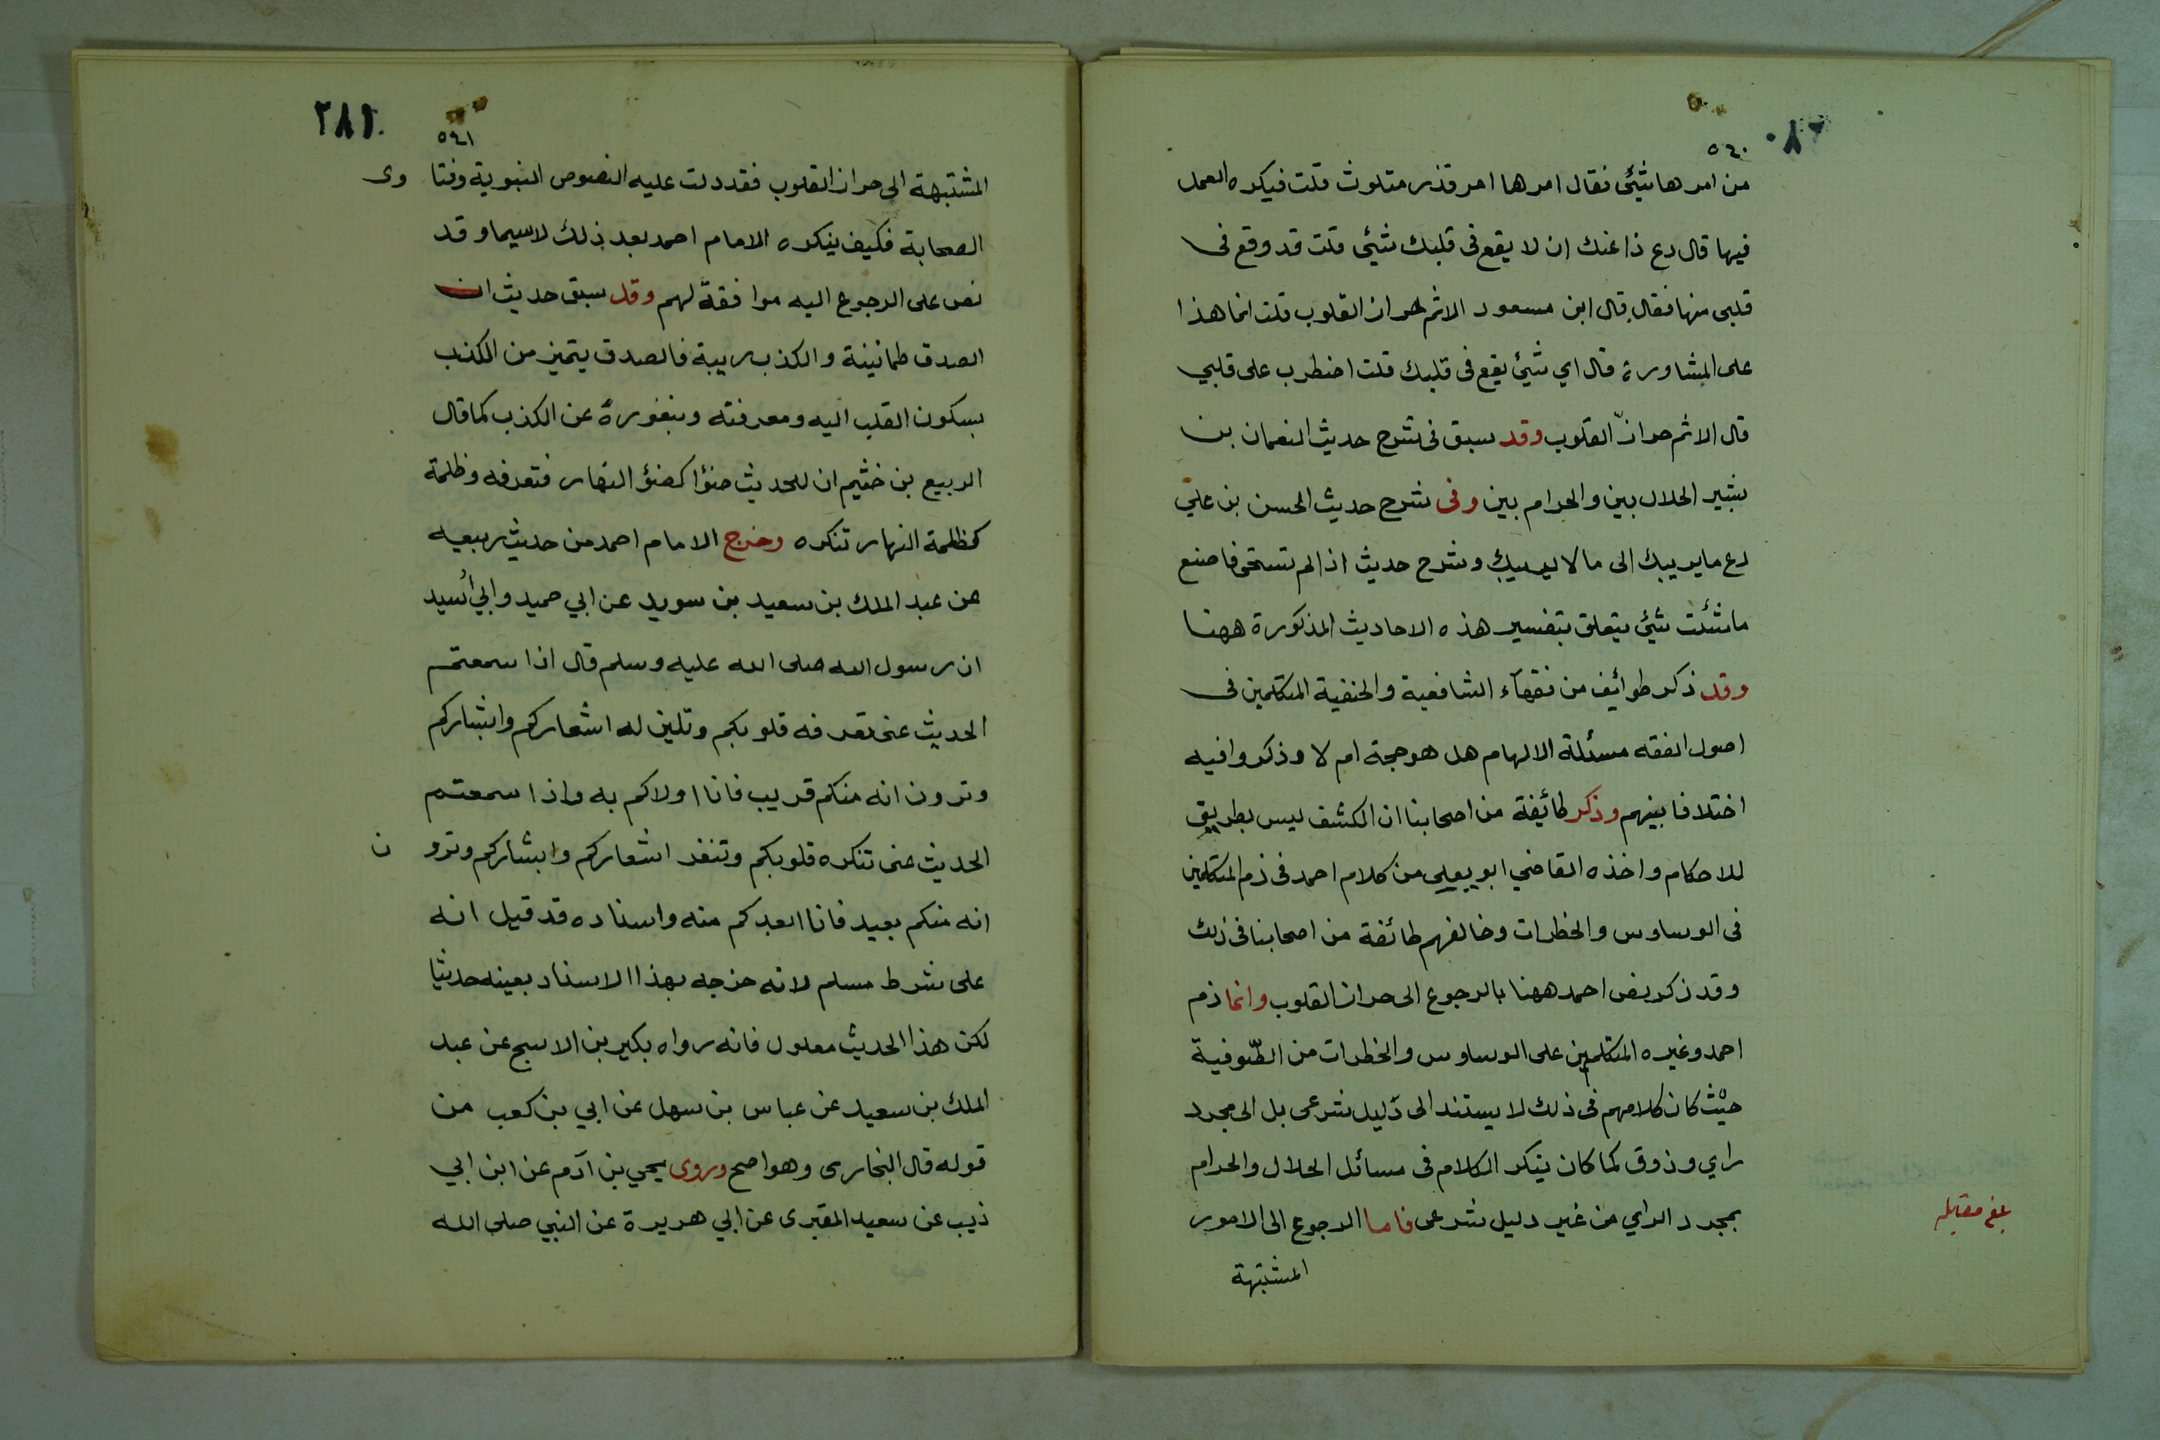 ٥٤٠
من امرها شئ فقال امرها امر قذر متلوث قلت فيكره العمل
فيها قال دع ذا عنك ان لا يقع فى قلبك شئ قلت قد وقع فى
قلبى منها فقال قال ابن مسعود الاثم حواز القلوب قلت انما هذا
على المشاورة قال اي شئ يقع فى قلبك قلت اضطرب على قلبي
قال الاثم حوازّ القلوب وقد سبق فى شرح حديث النعمان بن
بشير الحلال بين والحرام بين وفى شرح حديث الحسن بن علي
دع ما يريبك الى ما لا يريبك وشرح حديث اذا لم تستحى فاصنع
ما شئت شئ يتعلق بتفسير هذه الاحاديث المذكورة ههنا
وقد ذكر طوائف من فقهآء الشافعية والحنفية المتكلمين فى
اصول الفقه مسئلة الالهام هل هو حجة ام لا وذكروا فيه
اختلافا بينهم وذكر طائفة من اصحابنا ان الكشف ليس بطريق
للاحكام واخذه القاضي ابو يعلى من كلام احمد فى ذم المتكلمين
فى الوساوس والخطرات وخالفهم طائفة من اصحابنا فى ذلك
وقد ذكر نص احمد ههنا بالرجوع الى حواز القلوب وانما ذم
احمد وغيره المتكلمين على الوساوس والخطرات من الصّوفية
حيث كان كلامهم فى ذلك لا يستند الى دليل شرعى بل الى مجرد
راي وذوق كما كان ينكر الكلام فى مسائل الحلال والحرام
بمجرد الراي من غير دليل شرعى فاما الرجوع الى الامور
المشتبهة
بلغ مقابله
٢٨١
٥٤١
المشتبهة الى حواز القلوب فقد دلت عليه النصوص النبوية وفتاوى
الصحابة فكيف ينكره الامام احمد بعد ذلك لاسيما وقد
نص على الرجوع اليه موافقة لهم وقد سبق حديث ان
الصدق طمانينة والكذب ريبة فالصدق يتميز من الكذب
بسكون القلب اليه ومعرفته وبنفوره عن الكذب كما قال
الربيع بن خثيم ان للحديث ضوءا كضوء النهار فتعرفه وظلمة
كظلمة النهار تنكره وخرج الامام احمد من حديث ربيعه
عن عبد الملك بن سعيد بن سويد عن ابي حميد وابي أُسيد
ان رسول الله صلى الله عليه وسلم قال اذا سمعتم
الحديث عنى تعرفه قلوبكم وتلين له اشعاركم وابشاركم
وترون انه منكم قريب فانا اولاكم به واذا سمعتم
الحديث عنى تنكره قلوبكم وتنفر اشعاركم وابشاركم وترون
انه منكم بعيد فانا ابعدكم منه واسناده قد قيل انه
على شرط مسلم لانه خرجه بهذا الاسناد بعينه حديثا
لكن هذا الحديث معلول فانه رواه بكير بن الاشج عن عبد
الملك بن سعيد عن عباس بن سهل عن ابي بن كعب من
قوله قال البخارى وهو اصح وروى يحي بن آدم عن ابن ابي
ذيب عن سعيد المقبرى عن ابي هريرة عن النبي صلى الله